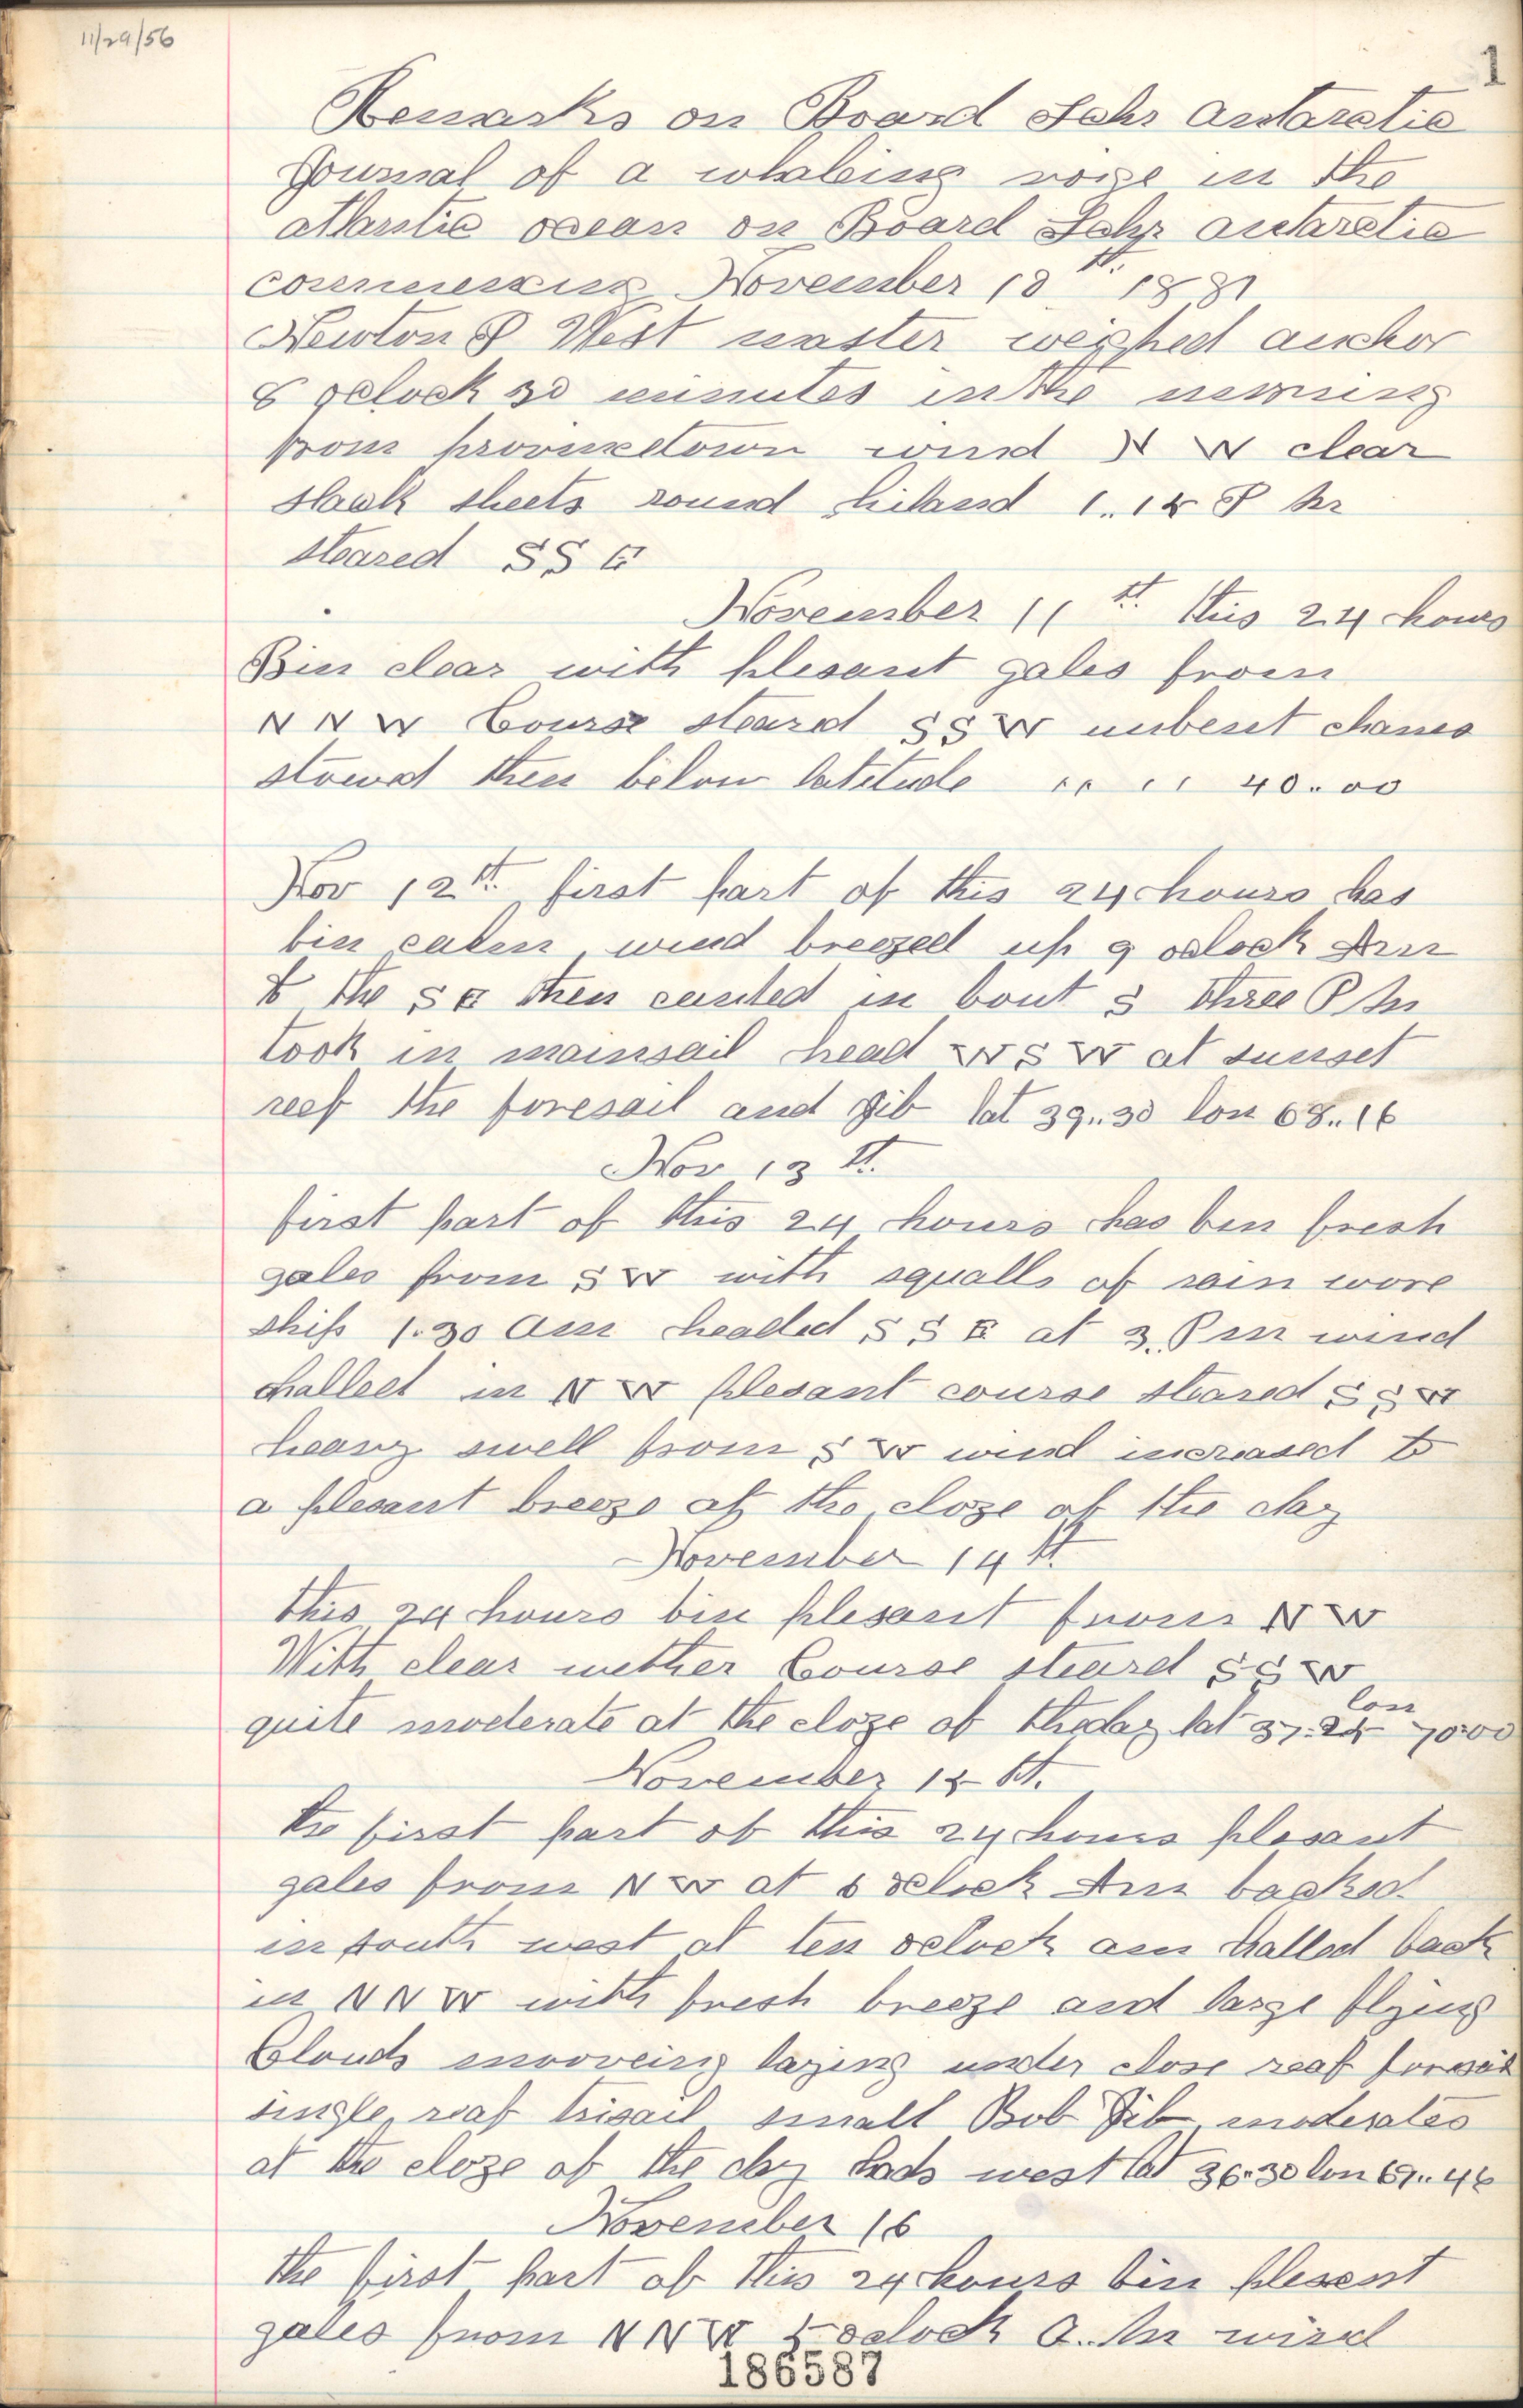 11/29/56
1
Remarks on Board Schr Antarctic
Journal of a whaleing voige in the
Atlantic ocean on Board Schr Antarctic
commencing November 10th. 1881
Newton P West master weighed anchor
8 oclock 30 minutes in the morning
from provincetown wind N W clear
slack sheets round hiland 1..15 P M
steared S S E
November 11th. this 24 hours
Bin clear with plesant gales from
N N W Course steard S S W unbent chanes
stowed them below latitude " " 40.00
Nov 12th. first part of this 24 hours has
bin calm wind breezed up 9 oclock Am
to the S E then canted in bout S three P M
took in mainsail head W S W at sunset
reef the foresail and gib lat 39..30 lon 68..16
Nov 13th.
first part of this 24 hours has ben fresh
gales from S W with squalls of rain wore
ship 1.30 Am headed S S E at 3. Pm wind
halled in N W plesant course steared S S W
heavy swell from S W wind increased to
a plesant breeze at the cloze of the day
November 14th
this 24 hours bin plesant from N W
With clear wether Course steard S S W
quite moderate at the cloze of the day lat 37.24 lon 70.00
November 15th.
the first part of this 24 hours plesant
gales from N W at 6 oclock Am backed
in south west at ten oclock am halled back
in N N W with fresh breeze and large flying
Clouds mooveing laying under close reaf forsail
single reaf trisail small Bob Jib moderates
at the cloze of the day heads west lat 36.30 lon 69..46
November 16
the first part of this 24 hours bin plesent
gales from N N W 5 oclock A.. M wind
186587